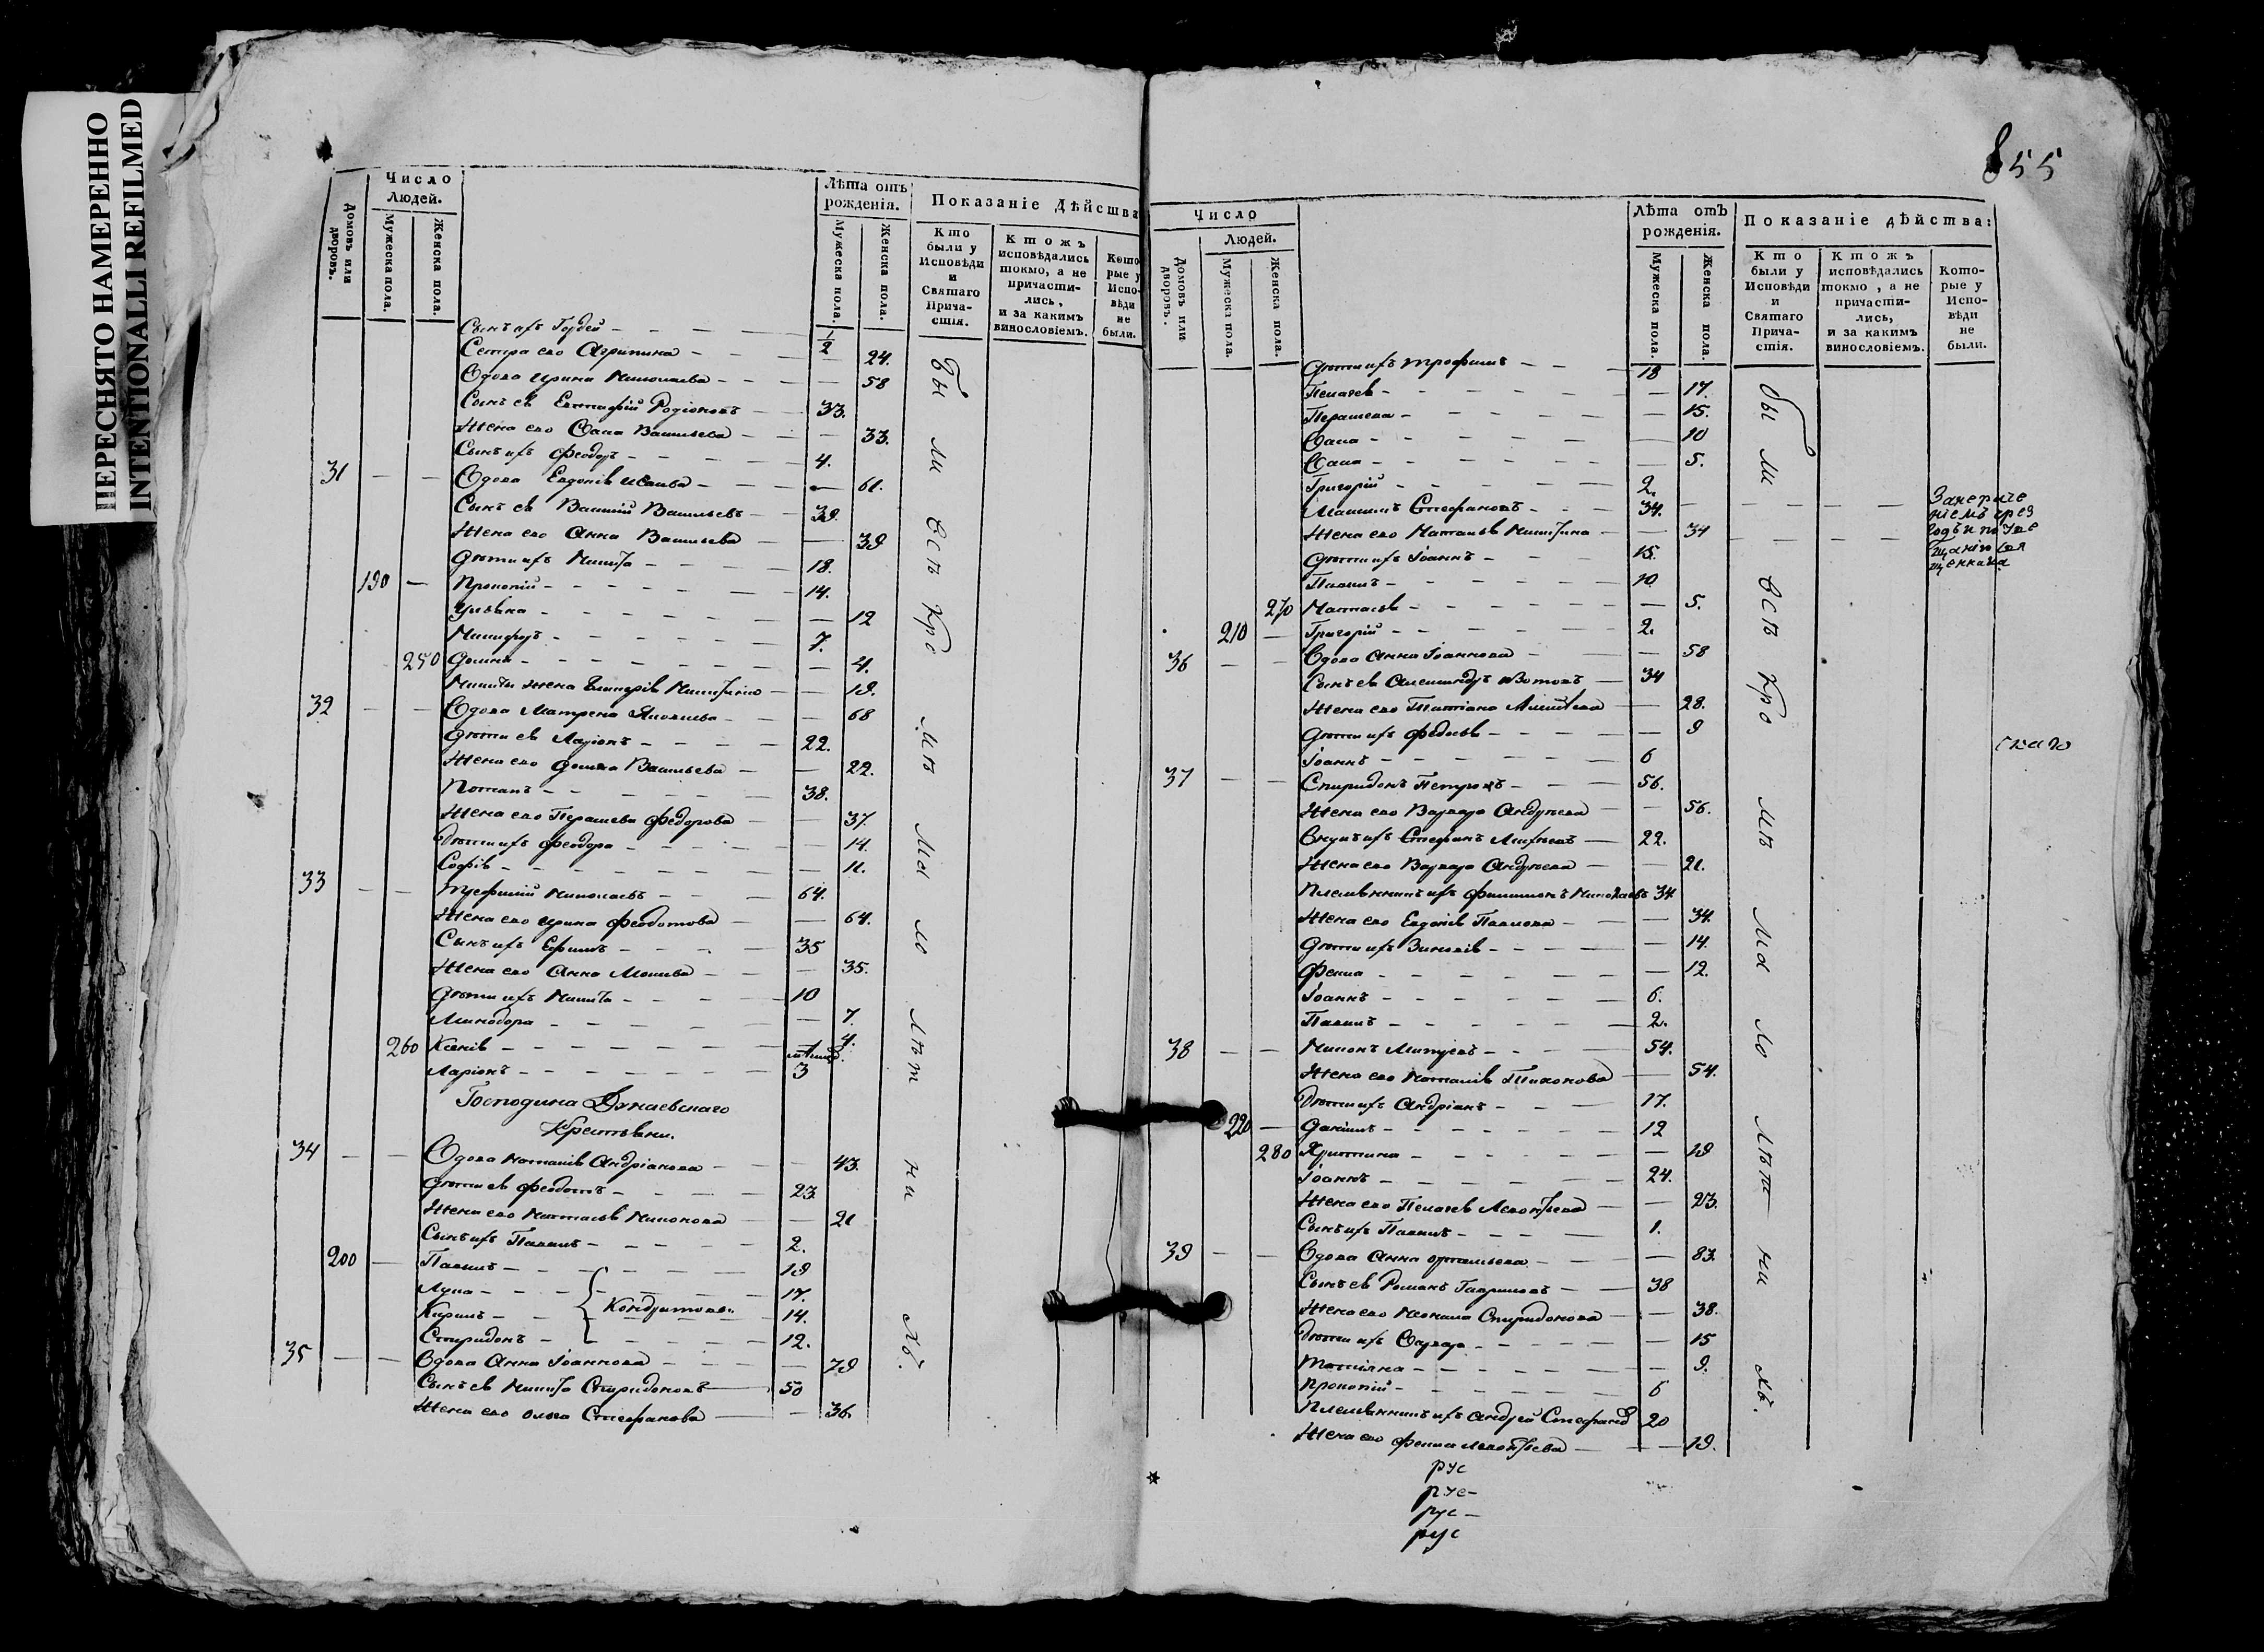 ПЕРЕСНЯТО НАМЕРЕННО
INTENTIONALLI REFILMED
855
Домовъ или дворовъ.
Число
Людей.
Мужеска пола.
Женска пола.
Лѣта отъ
рожденія.
Мужеска пола.
Женска пола.
Показаніе Дѣйства
Кто
были у
Исповѣди
и
Святаго
Прича-
стія.
Ктожъ
исповѣдались
токмо, а не
причасти-
лись,
и за какимъ
винословіемъ.
Кото
рые у
Испо-
вѣди
не
были.
Сынъ ихъ Гордей — ½
Сестра его Агрипина — 24.
Вдова Ирина Николаева — 58
Сынъ ея Евстафій Родіоновъ — 33.
Жена его Васса Васильева — 33.
Сынъ ихъ Феодоръ — 4.
31 — — Вдова Евдокія — 61.
Сынъ ея Василій Васильевъ — 39.
Жена его Анна Васильева — 39
Дѣти ихъ Никита — 18.
190 — Прокопій — 14.
Ульяна — 12
Никифоръ — 7.
250 Домна — 4.
Никиты жена Гликерія Никитина — 19.
32 — — Вдова Матрена Яковлева — 68
Дѣти ея Ларіонъ — 22.
Жена его Домна Васильева — 22.
Потапъ — 38.
Жена его Пераскева Федорова — 37.
Дѣти ихъ Феодора — 14.
Софія — 11.
33 — — Трофимій Николаевъ — 64.
Жена его Ирина Феодотова — 64.
Сынъ ихъ Ефимъ — 35
Жена его Анна — 35.
Дѣти ихъ Никита — 10
Минодора — 7.
260 Ксенія — 4.
Ларіонъ — 3
Господина Дунаевскаго
Крестьяни.
34 — — Вдова Наталія Андріанова — 43.
Дѣти ея Феодотъ — 23
Жена его Настасья — 21
Сынъ ихъ Павелъ — 2.
200 — Павелъ — 19
Лука — 17.
Кирилъ — Кондратовы — 14.
Спиридонъ — 12.
35 — — Вдова Анна Іоаннова — 79
Сынъ ея Никита Спиридоновъ — 50
Жена его Ольга Стефанова — 36.
Были
Всѣ
Кро
мѣ
Ма
ло
лѣт
ни
хъ.
Число
Домовъ или дворовъ.
Людей.
Мужеска пола.
Женска пола.
Лѣта отъ
рожденія.
Мужеска пола.
Женска пола.
Показаніе дѣйства:
Кто
были у
Исповѣди
и
Святаго
Прича-
стія.
Ктожъ
исповѣдались
токмо, а не
причасти-
лись,
и за какимъ
винословіемъ.
Кото-
рые у
Испо-
вѣди
не
были.
Дѣти ихъ Трофимъ — 18
Пелагея — 17.
Пераскева — 15.
Васса — 10
Васса — 5.
Григорій — 2.
Максимъ Стефановъ — 34.
Жена его Наталья Никитина — 34
Дѣти ихъ Іоаннъ — 15.
Павелъ — 10
270 Настасья — 5.
210 — Григорій — 2.
36 — — Вдова Анна Іоаннова — 58
Сынъ ея Александръ — 34
Жена его Татіана — 28.
Дѣти ихъ Федосья — 9
Іоаннъ — 6
37 — — Спиридонъ Петровъ — 56.
Жена его Варвара Андреева — 56.
Внукъ ихъ Стефанъ — 22.
Жена его Варвара Андреева — 21.
Племянникъ ихъ Филимонъ Николаевъ 34
Жена его Евдокія Павлова — 34.
Дѣти ихъ Зиновія — 14.
Фекла — 12.
Іоаннъ — 6.
Павелъ — 2.
38 — — 54.
Жена его Наталія Тихонова — 54.
Дѣти ихъ Андріанъ — 17.
220 — Даніилъ — 12
280 Христина — 19
Іоаннъ — 24.
Жена его Пелагея Леонтьева — 23.
Сынъ ихъ Павелъ — 1.
39 — — Вдова Анна — 83.
Сынъ ея Романъ Гавриловъ — 38
Жена его Неонила Спиридонова — 38.
Дѣти ихъ Варвара — 15
Татіяна — 9.
Прокопій — 6
Племянникъ ихъ Андрей Стефановъ 20
Жена его Фекла Леонтьева — 19.
рус
рус-
рус-
рус
были
Всѣ
Кро
мѣ
Ма
ло
лѣт
ни
хъ.